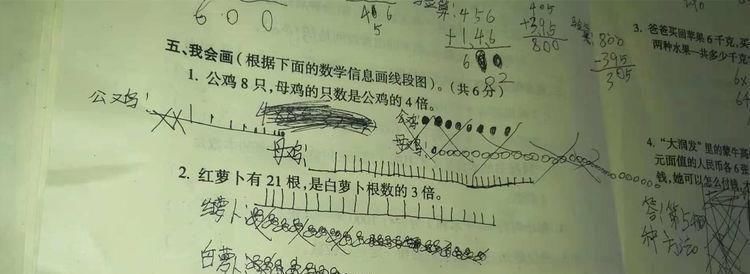 600
456
+146
60
405
+395
800
800
-395
305
五、我会画(根据下面的数学信息画线段图)。(共6分)
1. 公鸡8只,母鸡的只数是公鸡的4倍。
公鸡:
公鸡:
母鸡:
母鸡:
2. 红萝卜有21根,是白萝卜根数的3倍。
红萝卜:
白萝
3. 爸爸买回苹果6千克,买
两种水果一共多少千克
4. “大润发”里的蒙牛高
元面值的人民币各6张
钱,她可以怎么付钱
答:第5
种方法